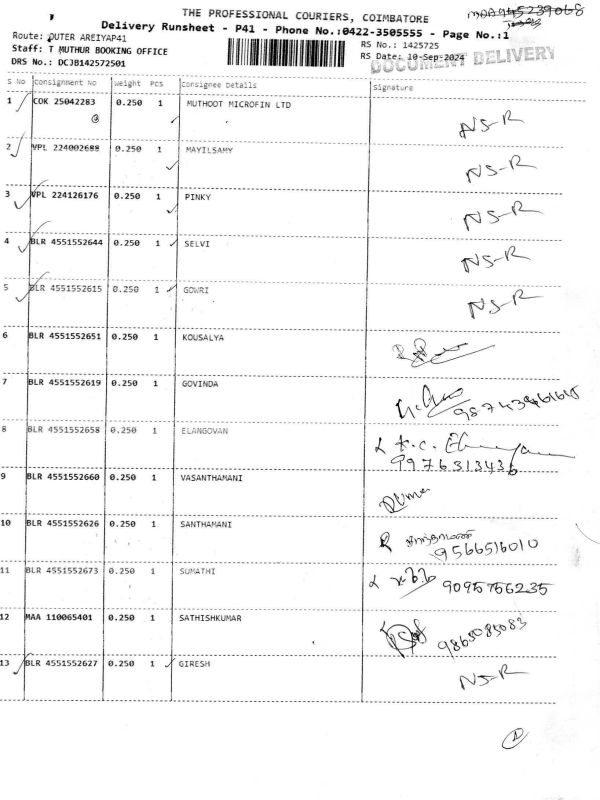 THE PROFESSIONAL COURIERS, COIMBATORE
Delivery Runsheet - P41 - Phone No.:0422-3505555 - Page No.:1
Route: OUTER AREIYAP41
Staff: T MUTHUR BOOKING OFFICE
DRS No.: DCJB142572501
RS No.: 1425725
RS Date: 10-Sep-2024
DOCUMENT DELIVERY
S No Consignment No Weight Pcs Consignee Details Signature
1 COK 25042283 0.250 1 MUTHOOT MICROFIN LTD NS-R
2 VPL 224002688 0.250 1 MAYILSAMY NS-R
3 VPL 224126176 0.250 1 PINKY NS-R
4 BLR 4551552644 0.250 1 SELVI NS-R
5 BLR 4551552615 0.250 1 GOWRI NS-R
6 BLR 4551552651 0.250 1 KOUSALYA
7 BLR 4551552619 0.250 1 GOVINDA
8 BLR 4551552658 0.250 1 ELANGOVAN
9976313436
9 BLR 4551552660 0.250 1 VASANTHAMANI
10 BLR 4551552626 0.250 1 SANTHAMANI சாந்தாமணி
9566516010
11 BLR 4551552673 0.250 1 SUMATHI 9095766235
12 MAA 110065401 0.250 1 SATHISHKUMAR 9865085083
13 BLR 4551552627 0.250 1 GIRESH NS-R